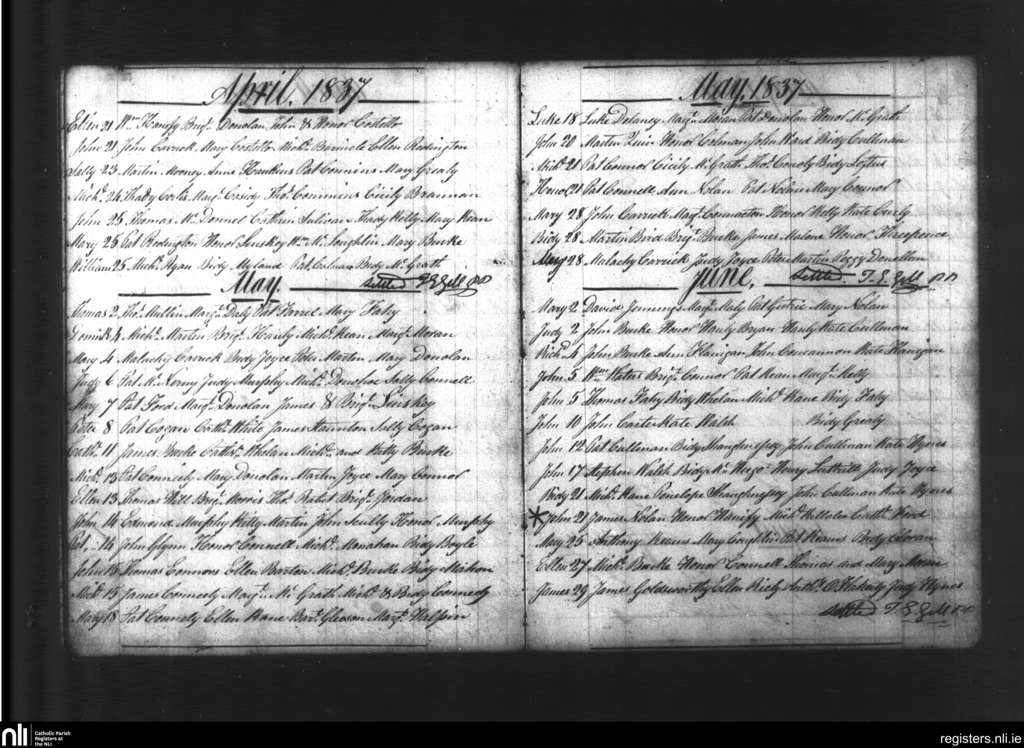 April, 1837
Ellen 21 Wm Hanify Brigt. Donolan John & Honor Costello
John 21 John Carrick Mary Costello Michl. Bernicle Ellen Redington
Sally 23 Martin Mooney Anne Hawkins Pat Commins Mary Grealy
Mich. 24 Thady Corly Margt. Casidy Thos. Commins Cicily Brannan
John 25 Thomas Mc.Donnel Cathrin Sulivan Thady Kelly Mary Kian
Mary 25 Pat Redington Honor Luiskey Wm Mc.Loughlin Mary Burke
William 25 Michl. Ryan Bidy Myland Pat Colman Bidy Mc.Grath
May. settled T.S. Gill PP
Thomas 2 Thos. Mullin Margt. Daly Pat Farrel Mary Fahy
Dominik 4 Michl. Martin Brigt. Hanly Michl. Kean Margt. Moran
Mary 4 Malachy Carrick Judy Joyce Peter Martin Mary Donolan
Judy 6 Pat Mc. Judy Murphy Michl. Donohoe Sally Connell
Mary 7 Pat Ford Margt. Donolan James & Brigt. Luiskey
Kate 8 Pat Cogan Cathn. White James Staunton Sally Cogan
Cathn. 11 James Burke Cathn. Whelan Michl. and Kitty Burke
Michl. 13 Pat Connely Mary Donolan Martin Joyce Mary Connor
Ellen 13 Thomas Hill Brigt. Morris Thos. Brigt. Jordan
John 14 Edmond Murphy Kitty Martin John Scully Honor Murphy
Pat 14 John Glynn Honor Connell Michl. Monahan Bidy Boyle
John 15 Thomas Connors Ellen Barton Michl. Burke Bidy Mahon
Michl. 15 James Connely Margt. Mc Grath Michl. & Bidy Connely
Mary 18 Pat Connely Ellen Kane Gleeson Margt. Halpin
May, 1837
Luke 18 Luke Delaney Margt. Moran Pat Donolan Honor Mc.Grath
John 20 Martin Quin Honor Colman John Ward Bidy Cullinan
Michl. 21 Pat Connor Cicily Mc.Grath Thos. Conoly Bidy Loftus
Honor 21 Pat Connell Ann Nolan Pat Nolan Mary Connor
Mary 28 John Carrick Margt. Honor Kelly Kate Curly
Bidy 28 Martin Bird Brigt. Burke James Malone Honor
May 28 Malachy Carrick Judy Joyce Peter Martin Peggy Donellan
June, settled T.S. Gill PP
Mary 2 David Jennings Margt. Maly Pat Mary Nolan
Judy 2 John Burke Honor Hanly Bryan Hanly Kate Cullinan
Richd. 4 John Burke Ann Flanigan John Concannon Kate Flanigan
John 5 Wm Waters Brigt. Connor Pat Kean Margt. Kelly
John 5 Thomas Fahy Bidy Whelan Michl. Kane Kitty Fahy
John 10 John Carter Kate Walsh Bidy Grealy
John 12 Pat Cullinan Bidy Shaughnessy John Cullinan Kate Hynes
John 17 Stephen Walsh Bidy Mc. Henry Luttrell Judy Joyce
Bidy 21 Michl. Kane Penelope Shaughnessy John Cullinan Kate Hynes
* John 21 James Nolan Honor Hanify Michl. Cathn. Ford
Mary 25 Anthony Kearns Mary Coughlin Pat Kearns Bidy Cloran
Ellen 27 Michl. Burke Honor Connell Thomas and Mary Moran
James 29 James Goldsworthy Ellen Kiely Judy Hynes
settled T.S. Gill PP
nli
Catholic Parish
Registers at
the NLI
registers.nli.ie